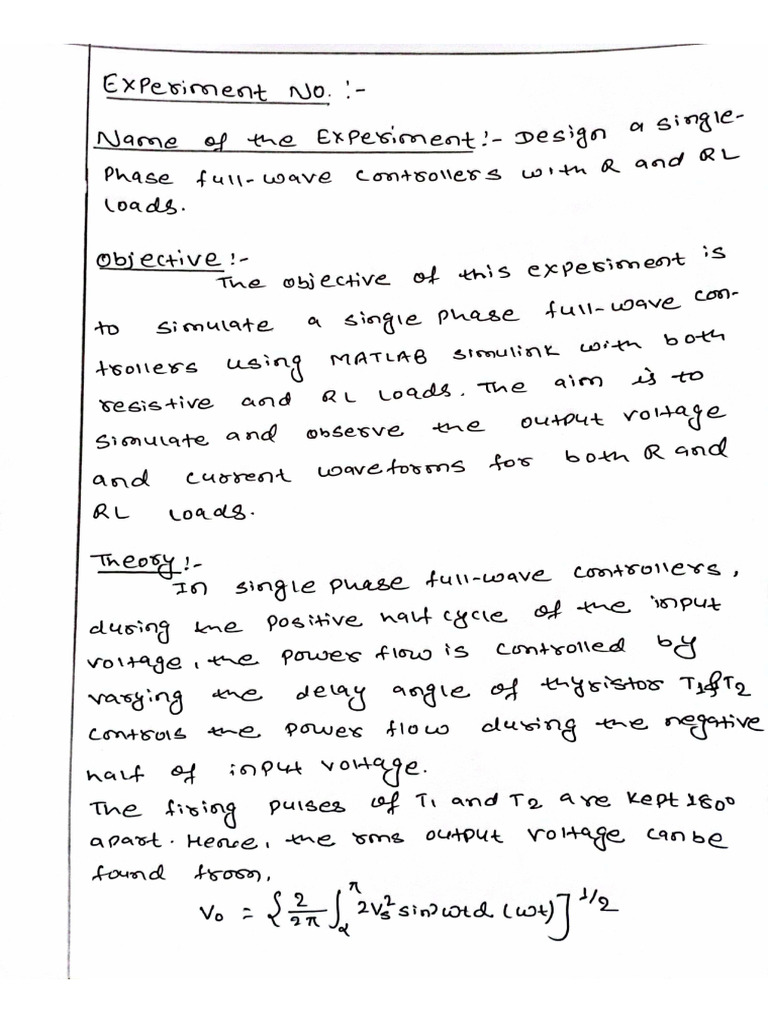 Experiment No. :-
Name of the Experiment :- Design a single-
Phase full-wave controllers with R and RL
loads.
Objective :-
The objective of this experiment is
to simulate a single phase full-wave con-
trollers using MATLAB simulink with both
resistive and RL loads. The aim is to
simulate and observe the output voltage
and current waveforms for both R and
RL loads.
Theory :-
In single phase full-wave controllers,
during the positive half cycle of the input
voltage, the power flow is controlled by
varying the delay angle of thyristor T1 & T2
controls the power flow during the negative
half of input voltage.
The firing pulses of T1 and T2 are kept 180°
apart. Hence, the rms output voltage can be
found from,
V₀ = {2/2π ∫_α^π 2Vs² sin²ωt d(ωt)]^1/2